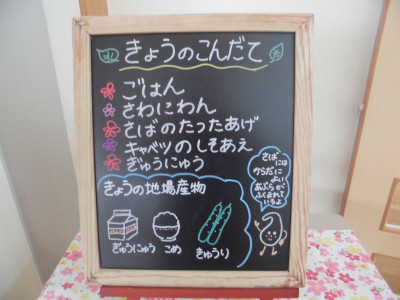 きょうのこんだて
ごはん
さわにわん
さばのたったあげ
キャベツのしそあえ
ぎゅうにゅう
きょうの地場産物
ぎゅうにゅう
こめ
きゅうり
さばには
からだに
よい
あぶらが
ふくまれて
いるよ